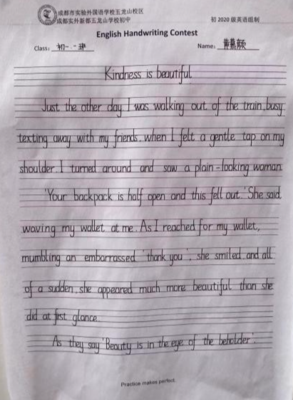 成都市实验外国语学校五龙山校区
成都东外新都五龙山学校初中
初2020级英语组制
English Handwriting Contest
Class: 初一
Name:
Kindness is beautiful
Just the other day I was walking out of the train, busy
texting away with my friends. when I felt a gentle tap on my
shoulder. I turned around and saw a plain-looking woman.
"Your backpack is half open and this fell out." She said
waving my wallet at me. As I reached for my wallet,
mumbling an embarrassed "thank you", she smiled. and all
of a sudden, she appeared much more beautiful than she
did at first glance.
As they say "Beauty is in the eye of the beholder".
Practice makes perfect.